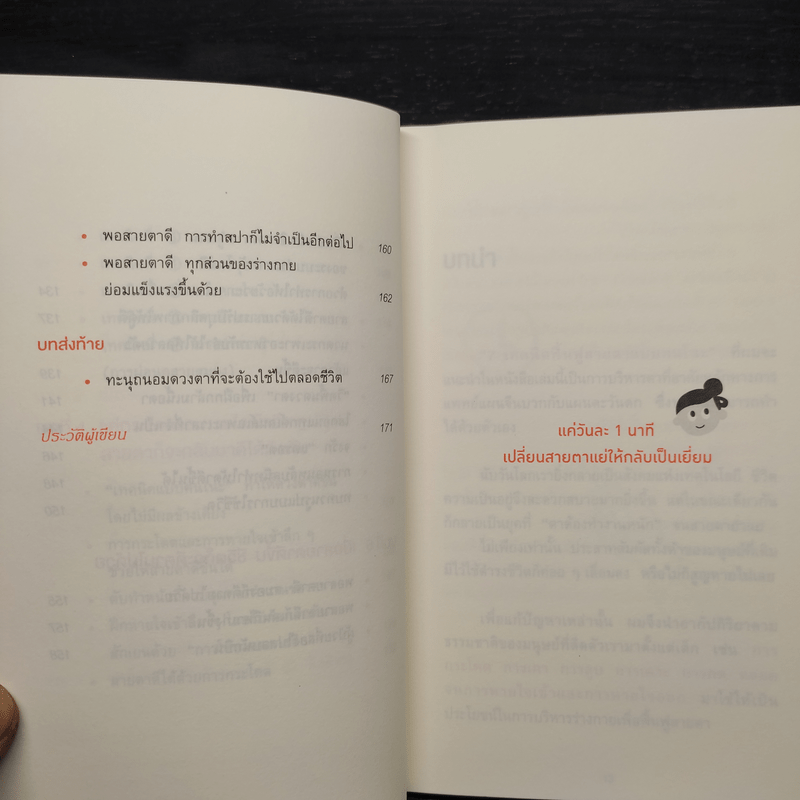 • พอสายตาดี การทำสปาก็ไม่จำเป็นอีกต่อไป 160
• พอสายตาดี ทุกส่วนของร่างกาย
ย่อมแข็งแรงขึ้นด้วย 162
บทส่งท้าย
• ทะนุถนอมดวงตาที่จะต้องใช้ไปตลอดชีวิต 167
ประวัติผู้เขียน 171
แค่วันละ 1 นาที
เปลี่ยนสายตาแย่ให้กลับเป็นเยี่ยม